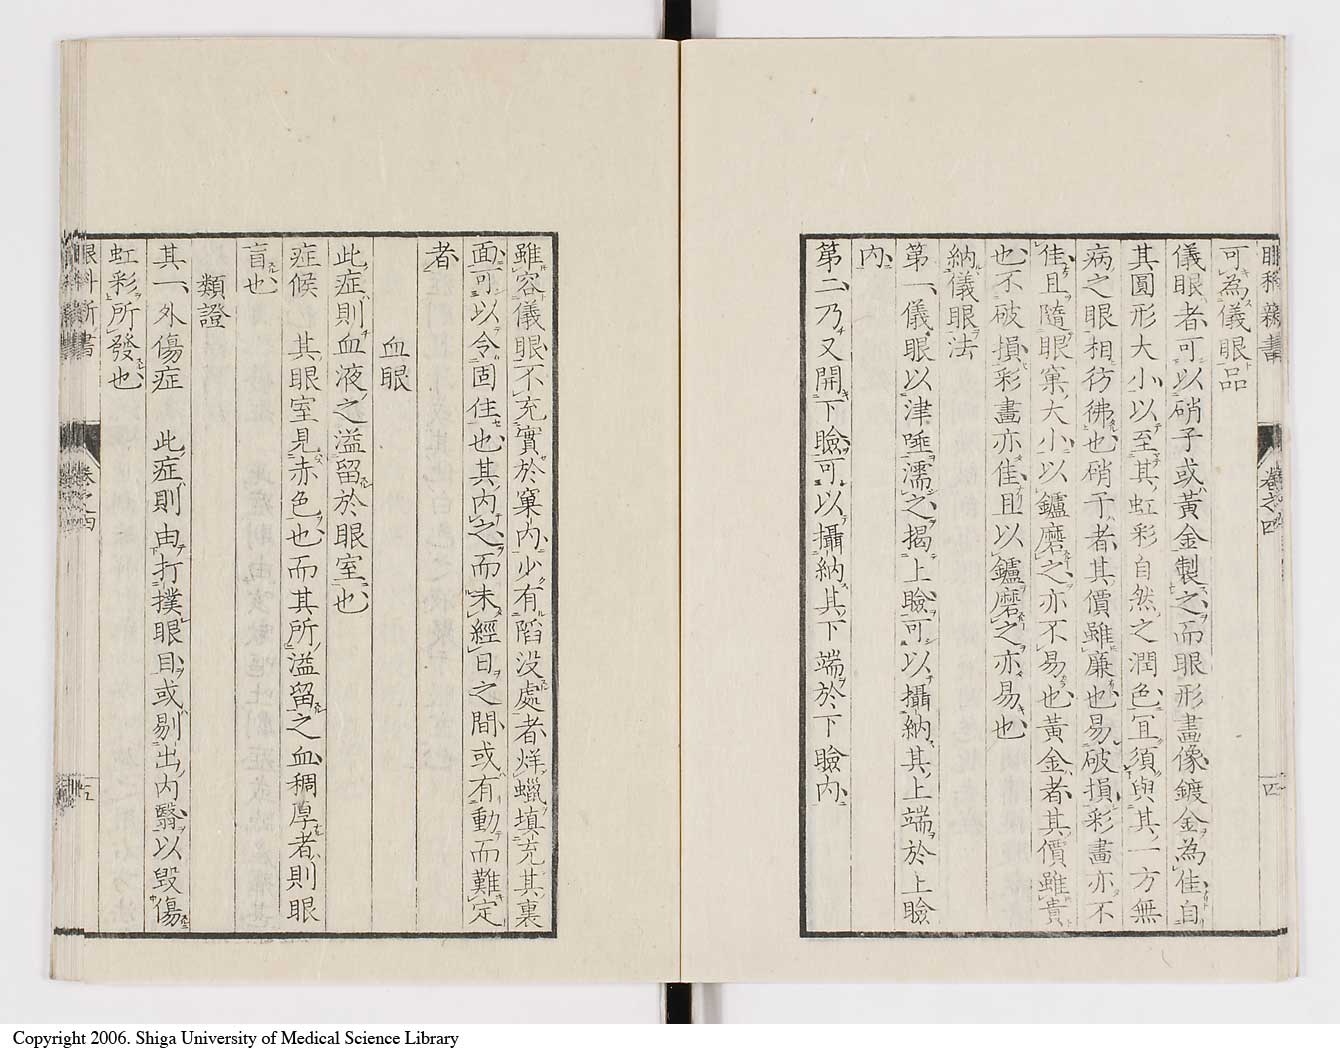 眼科新書
卷之四
可為儀眼品
儀眼者可以硝子或黃金製之而眼形畫像鍍金為佳自
其圓形大小以至其虹彩自然之潤色冝須與其一方無
病之眼相彷彿也硝子者其價雖廉也易破損彩畫亦不
佳且隨眼窠大小以鑪磨之亦不易也黃金者其價雖貴
也不破損彩畫亦佳且以鑪磨之亦易也
納儀眼法
第一儀眼以津唾濡之揭上瞼可以攝納其上端於上瞼
內
第二乃又開下瞼可以攝納其下端於下瞼內
雖容儀眼不充實於窠內少有陷没處者烊蠟填充其裏
面可以令固住也其內之而未經日之間或有動而難定
者
血眼
此症則血液之溢留於眼室也
症候 其眼室見赤色也而其所溢留之血稠厚者則眼
盲也
類證
其一外傷症 此症則由打撲眼目或剔出內翳以毀傷
虹彩所發也
眼科新書
卷之四
Copyright 2006. Shiga University of Medical Science Library